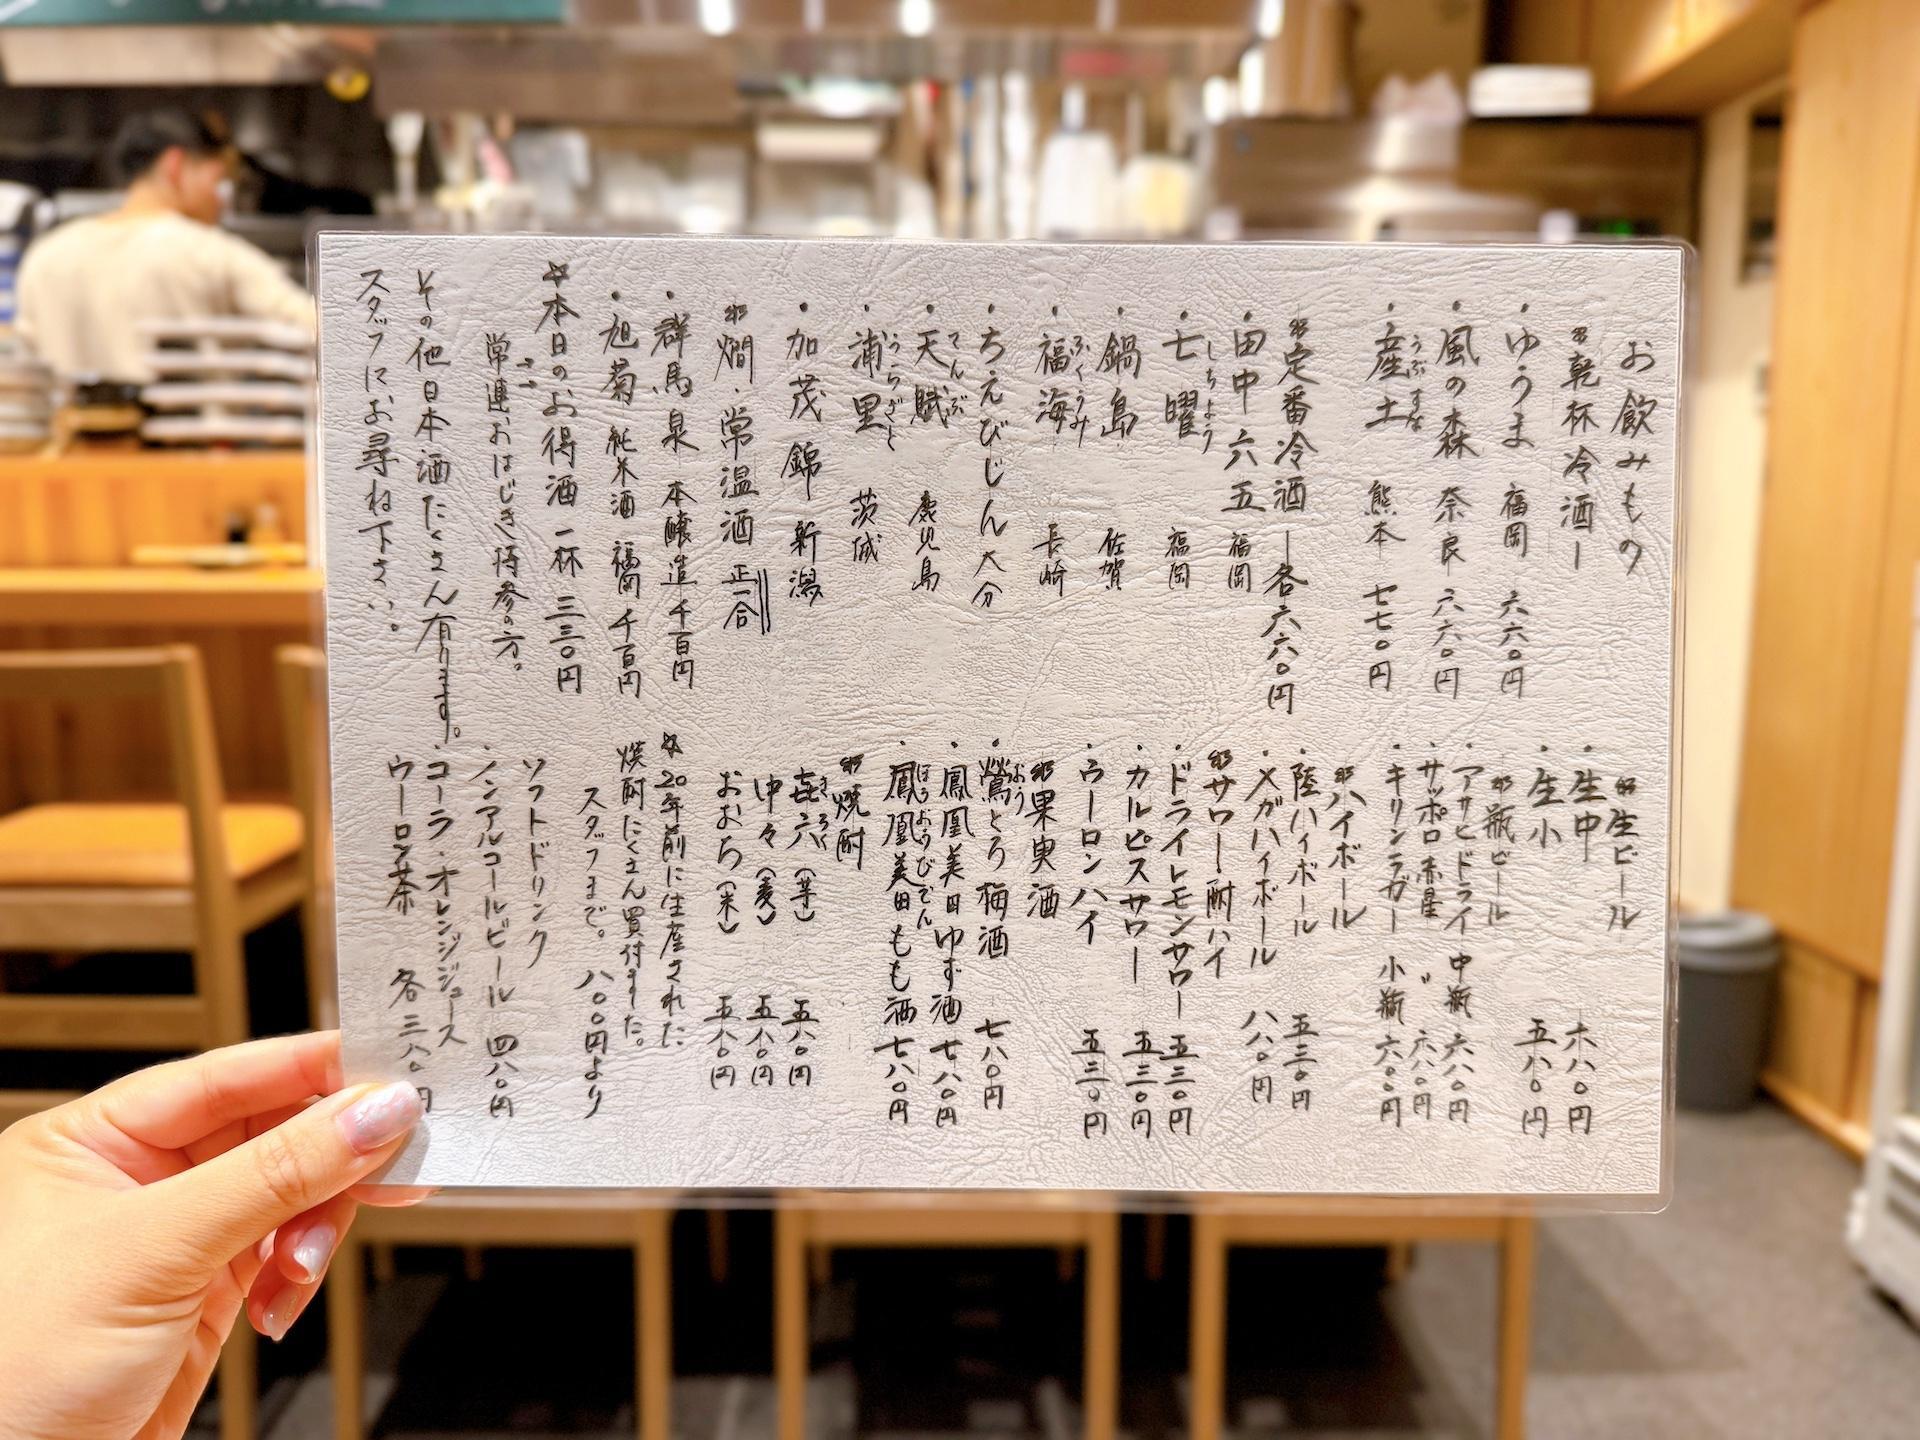 お飲みもの
乾杯冷酒ー
・ゆうま 福岡 六六〇円
・風の森 奈良 六六〇円
・産土 うぶすな 熊本 七七〇円
定番冷酒ー各六六〇円
・田中六五 福岡
・七曜 しちよう 福岡
・鍋島 佐賀
・福海 ふくうみ 長崎
・ちえびじん 大分
・天賦 てんぶ 鹿児島
・浦里 うらざと 茨城
・加茂錦 新潟
燗・常温酒 正一合
・群馬泉 本醸造 千百円
・旭菊 純米酒 福岡 千百円
☆本日のお得酒 一杯 三三〇円
常連さまおはじき持参の方。
その他日本酒たくさん有ります。
スタッフにお尋ね下さい。
生ビール
・生中 六八〇円
・生小 五八〇円
瓶ビール
・アサヒドライ 中瓶 六八〇円
・サッポロ赤星 〃 六八〇円
・キリンラガー 小瓶 六〇〇円
ハイボール
・陸ハイボール 五三〇円
・メガハイボール 八八〇円
サワー・酎ハイ
・ドライレモンサワー 五三〇円
・カルピスサワー 五三〇円
・ウーロンハイ 五三〇円
果実酒
・鶯とろ梅酒 おう 七八〇円
・鳳凰美田ゆず酒 七八〇円
・鳳凰美田もも酒 ほうおうびでん 七八〇円
焼酎
㐂六(芋) きろく 五八〇円
中々(麦) 五八〇円
おおち(米) 五八〇円
☆20年前に生産された
焼酎たくさん買付ました。
スタッフまで。 八〇〇円より
ソフトドリンク
・ノンアルコールビール 四八〇円
・コーラ・オレンジジュース
ウーロン茶 各三八〇円